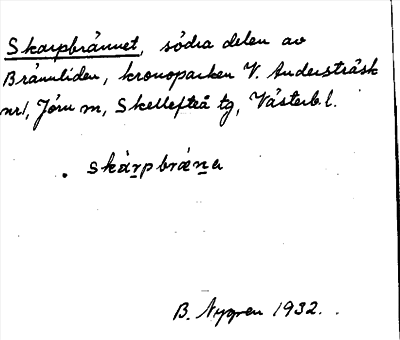 Skarpbrännet, södra delen av
Brännliden, kronoparken V. Andersträsk
nr1, Jörn m, Skellefteå tg, Västerb. l.
skàr̲pbrán̲a
B. Nygren 1932.